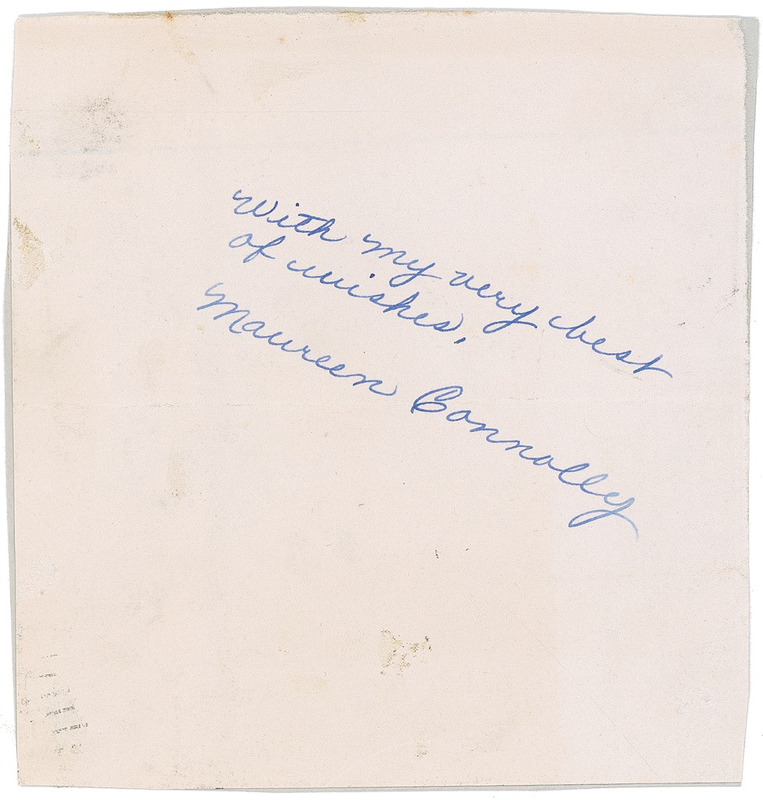 With my very best
of wishes,
Maureen Connolly